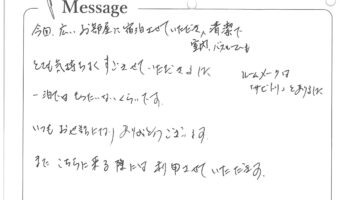 Message
今回、広いお部屋に宿泊させていただき、清潔で
室内、バスルームも
とても気持ちよくすごさせていただきました
ルームメークは
一泊ではもったいないくらいです。
いつもお世話になりありがとうございます
またこちらに来る際には利用させていただきます。